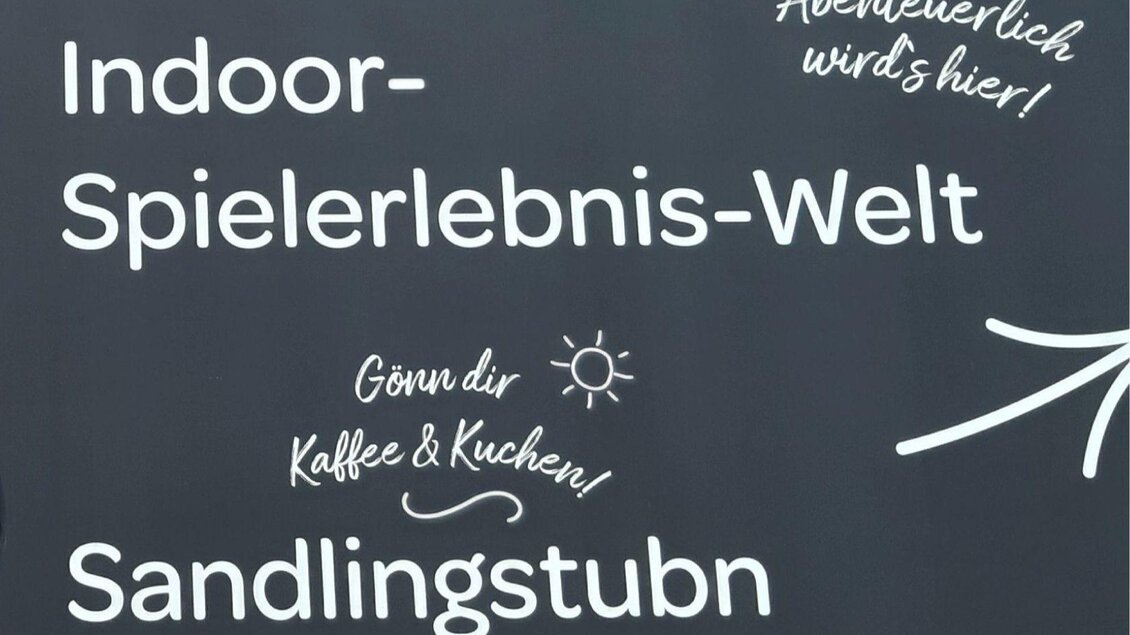 Abenteuerlich
wird`s hier!
Indoor-
Spielerlebnis-Welt
Gönn dir
Kaffee & Kuchen!
Sandlingstubn